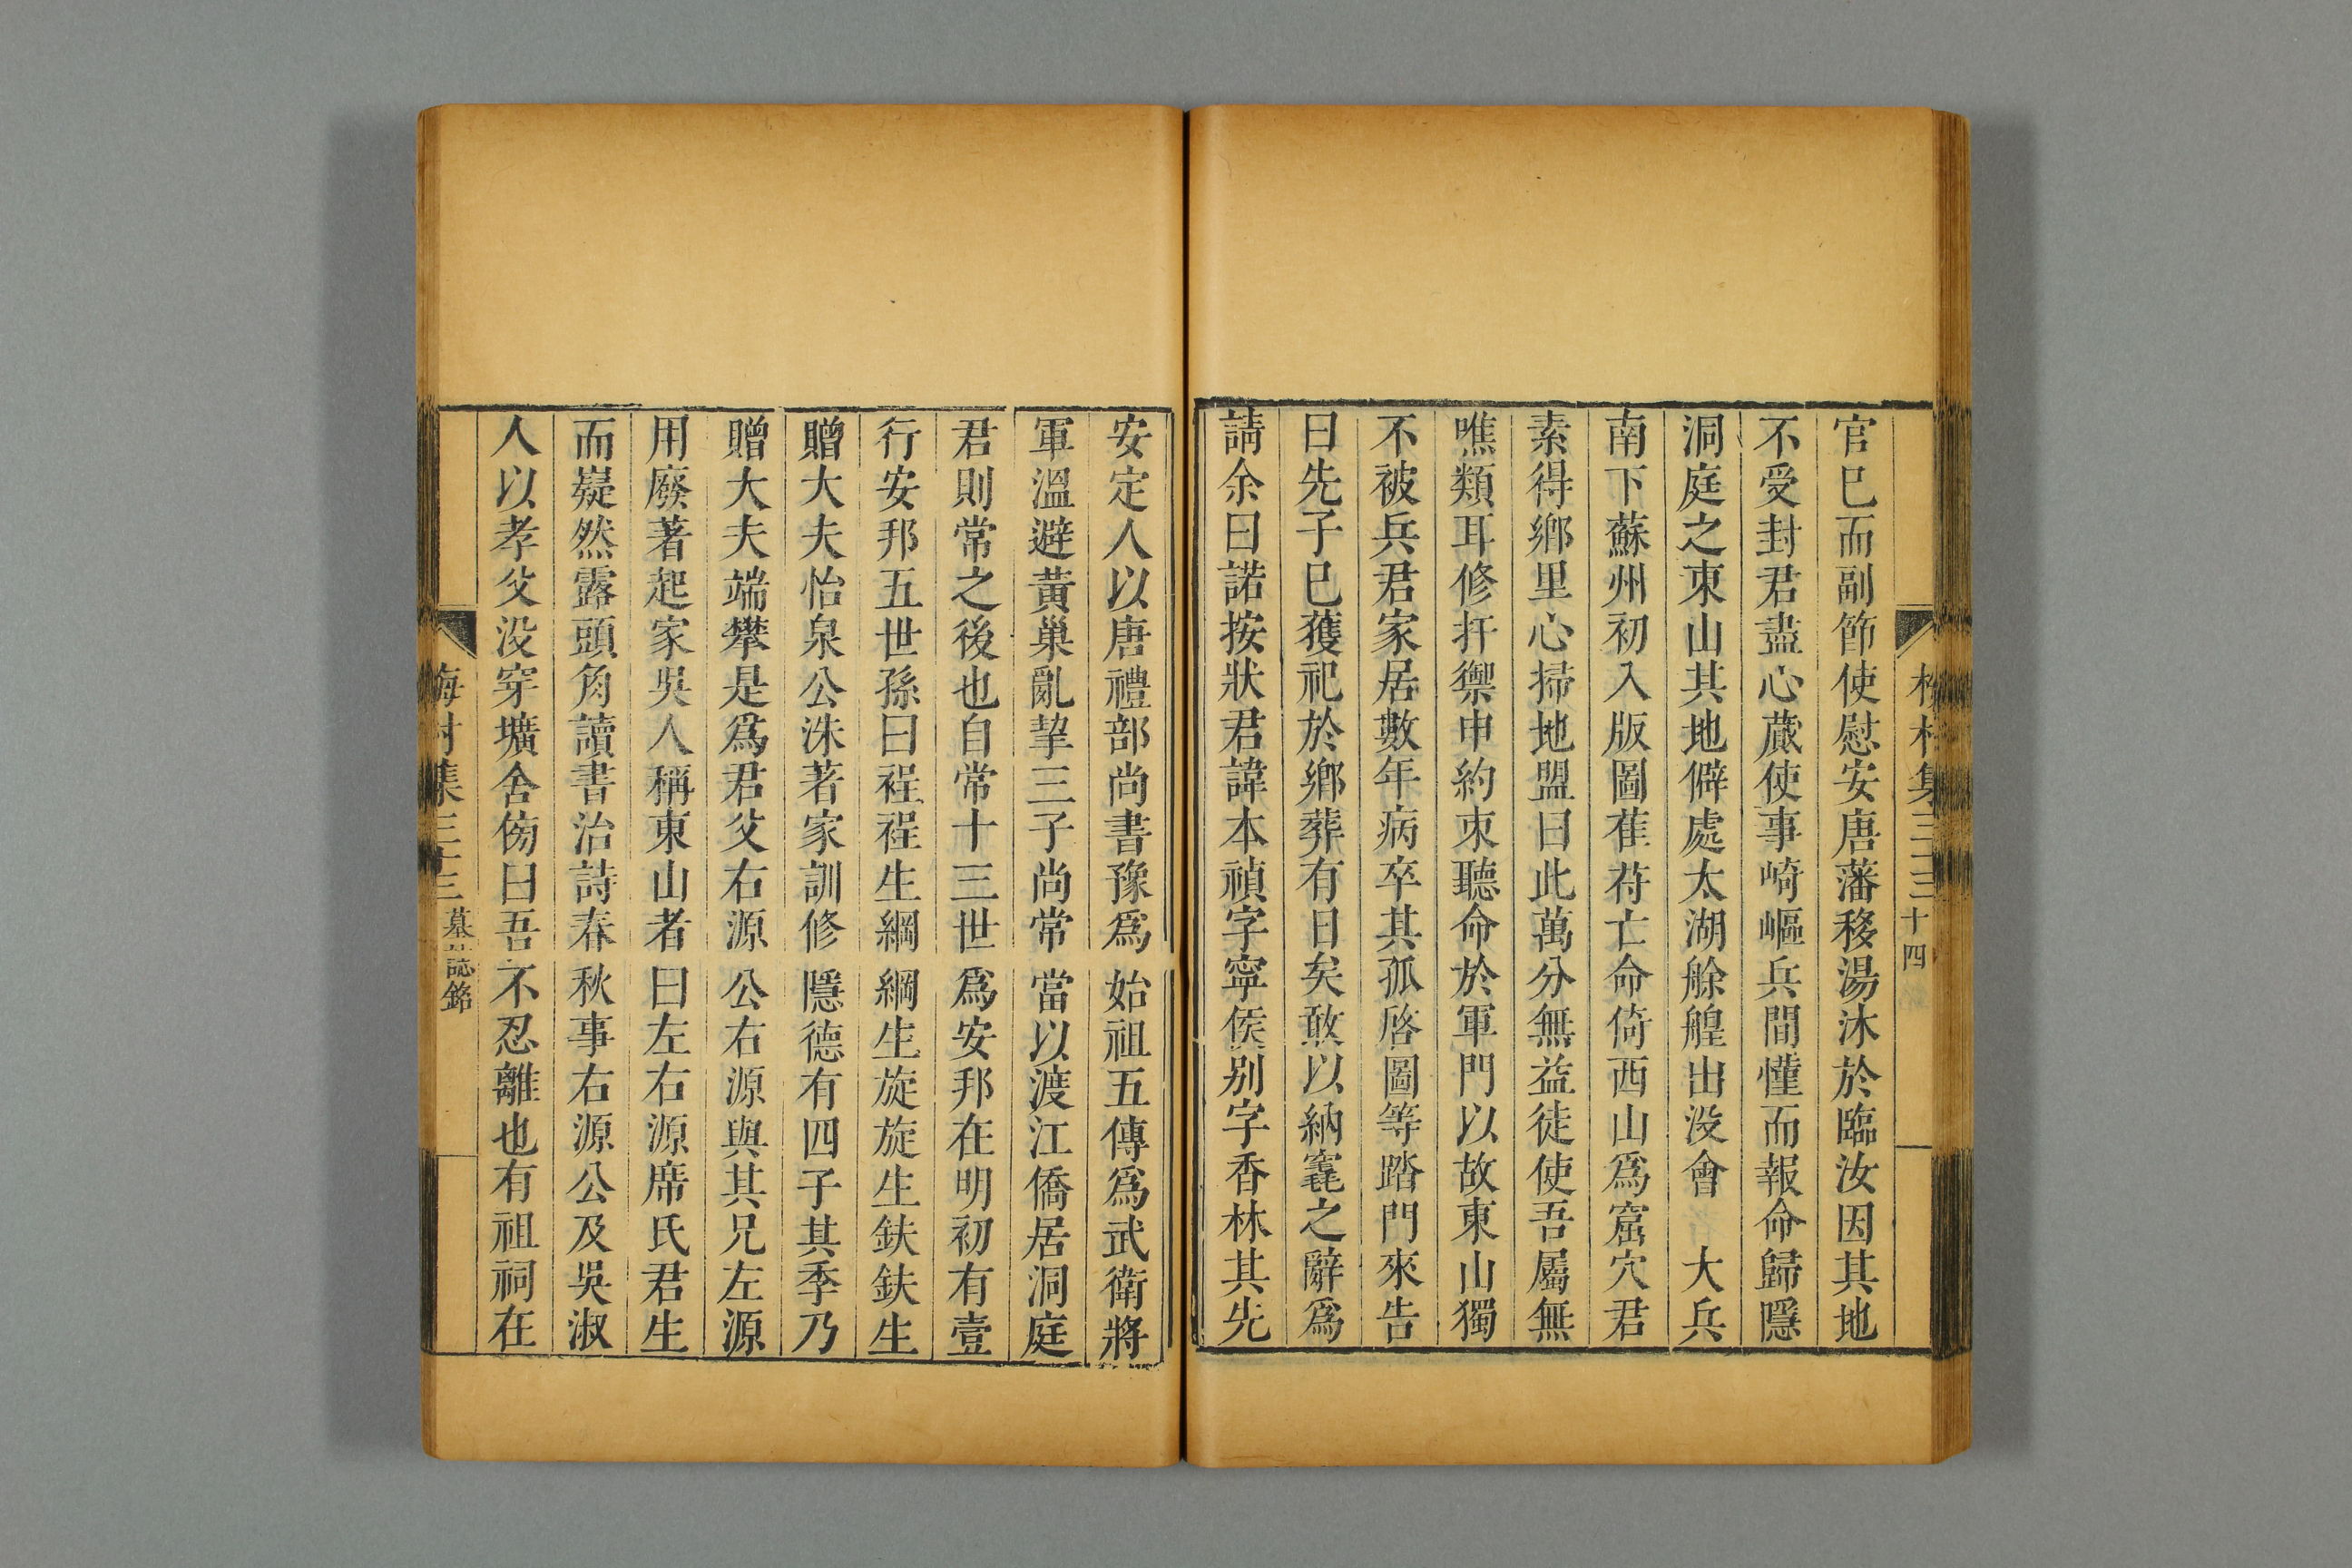 官已而副節使慰安唐藩移湯沐於臨汝因其地
不受封君盡心蕆使事崎嶇兵間慬而報命歸隱
洞庭之東山其地僻處太湖艅艎出没會 大兵
南下蘇州初入版圖萑苻亡命倚西山爲窟穴君
素得鄉里心掃地盟曰此萬分無益徒使吾屬無
噍類耳修扞禦申約束聽命於軍門以故東山獨
不被兵君家居數年病卒其孤啓圖等踏門來告
曰先子已獲祀於鄉葬有日矣敢以納竁之辭爲
請余曰諾按狀君諱本禎字寧侯别字香林其先
十四
安定人以唐禮部尚書豫爲始祖五傳爲武衛將
軍溫避黃巢亂挈三子尚常當以渡江僑居洞庭
君則常之後也自常十三世爲安邦在明初有壹
行安邦五世孫曰裎裎生綱綱生旋旋生鈇鈇生
贈大夫怡泉公洙著家訓修隱德有四子其季乃
贈大夫端攀是爲君父右源公右源與其兄左源
用廢著起家吳人稱東山者曰左右源席氏君生
而嶷然露頭角讀書治詩春秋事右源公及吳淑
人以孝父没穿壙舍傍曰吾不忍離也有祖祠在
梅村集三十三 墓誌銘